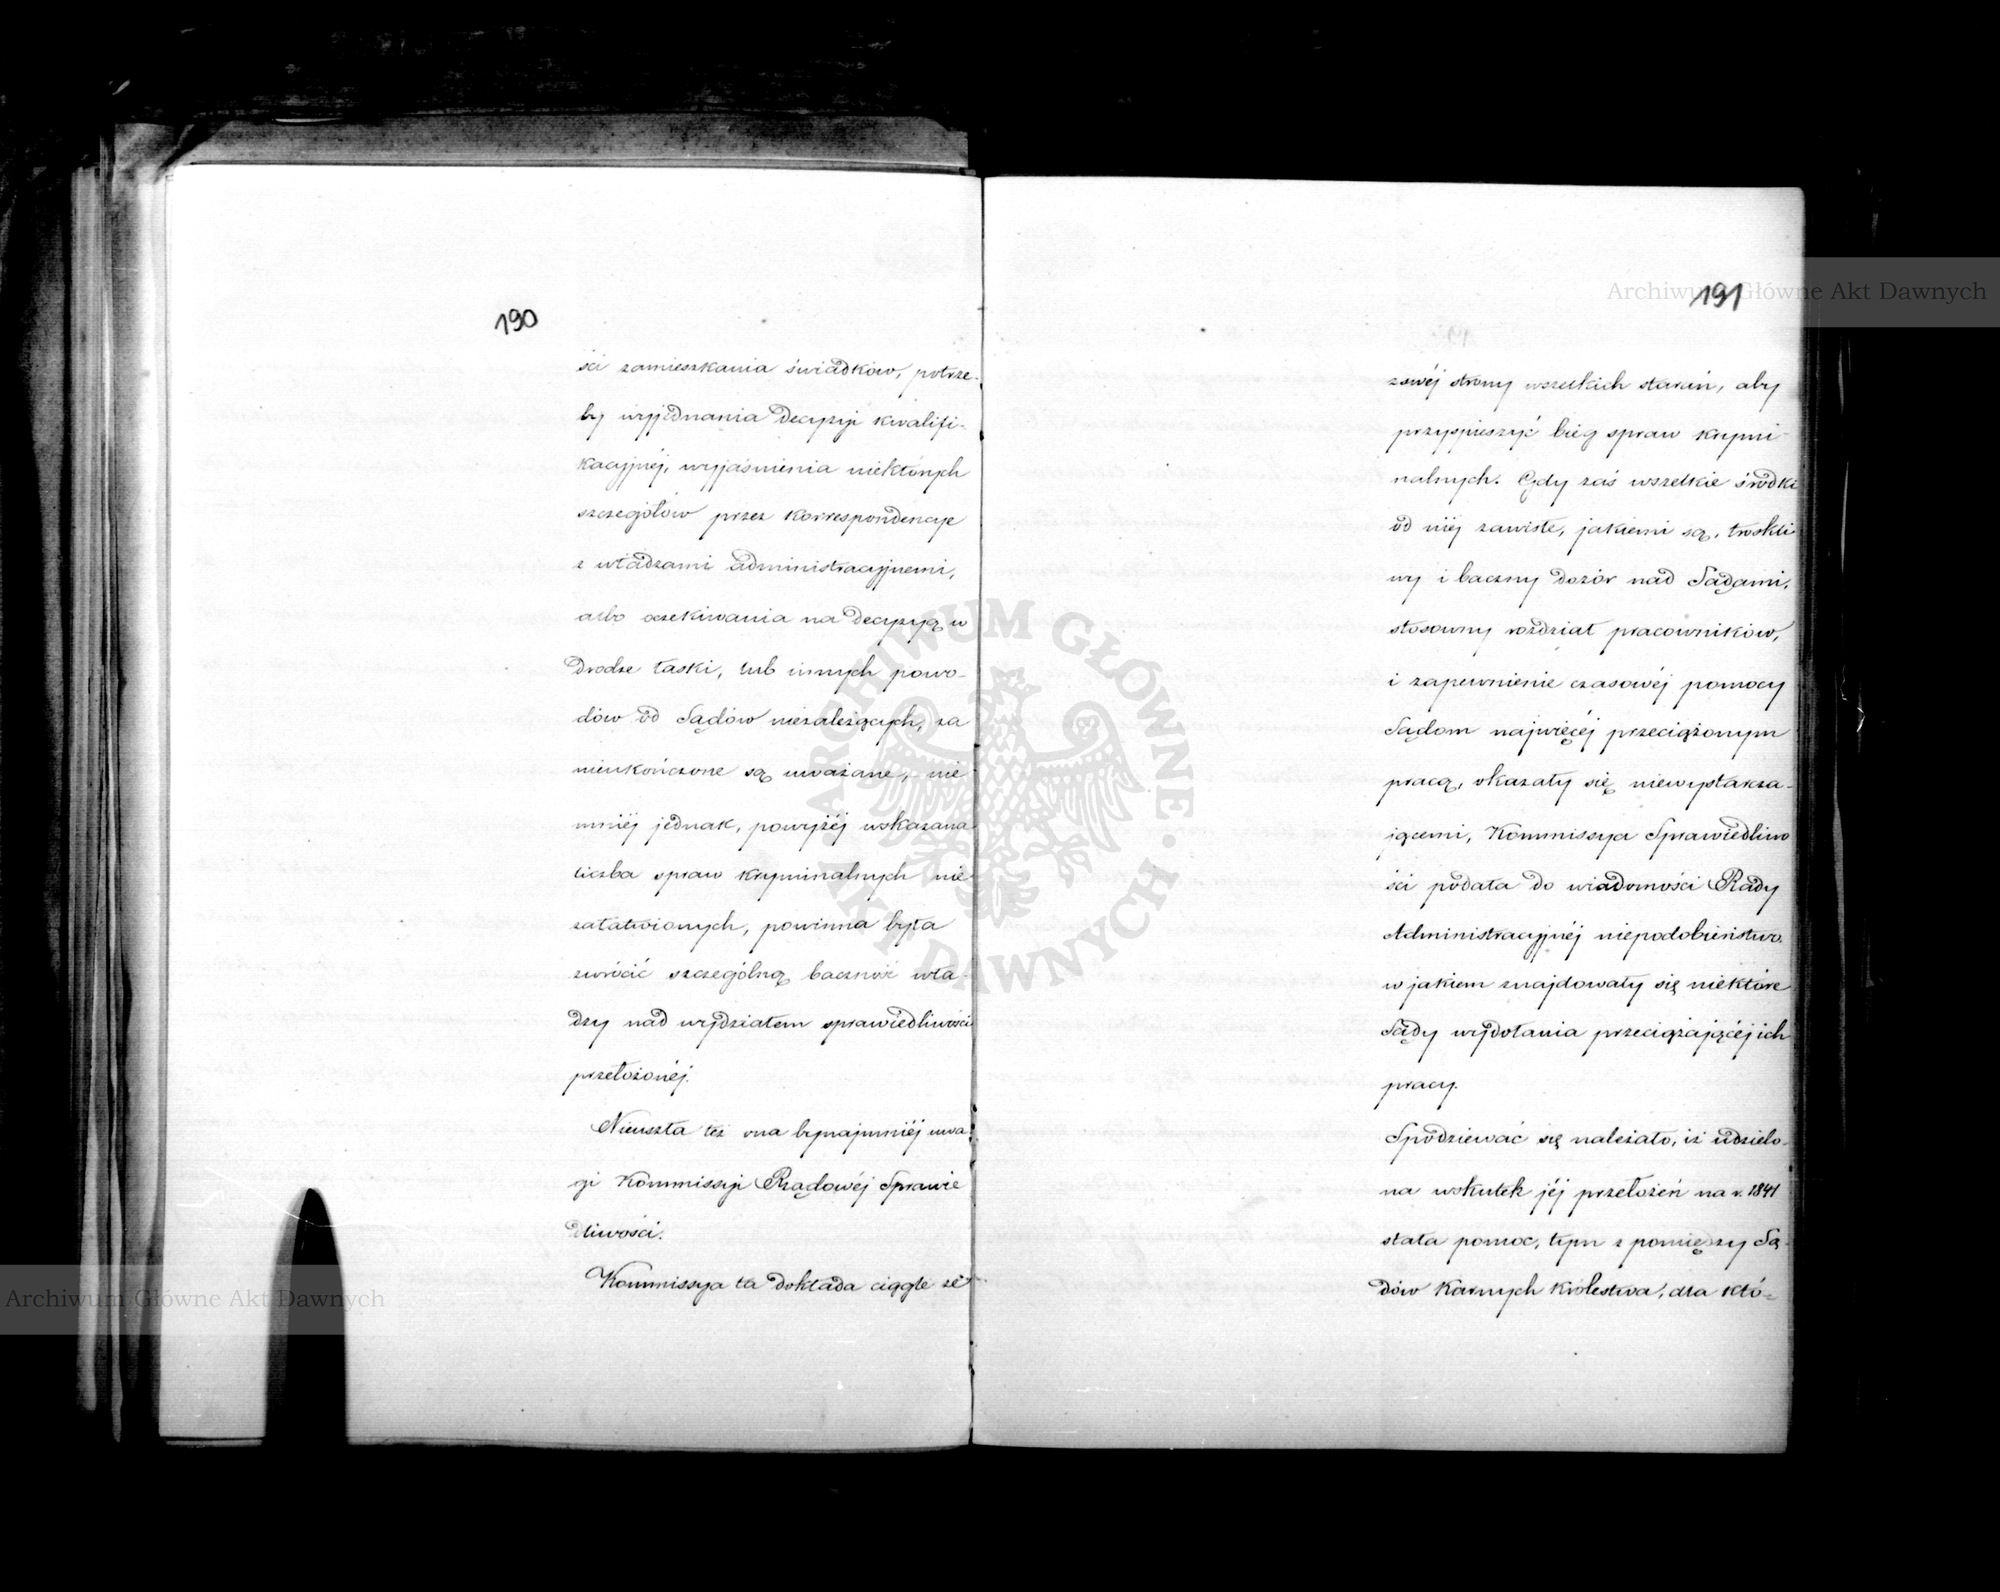 190
ści zamieszkania świadków, potrze-
by wyjednania decyzji kwalifi-
kacyjnéj, wyjaśnienia niektórych
szczegółów przez korrespondencye
z władzami administracyjnemi,
albo oczekiwania na decyzyą w
drodze łaski, lub innych powo-
dów od Sądów niezależących, za
nieukończone są uważane, nie
mniéj jednak, powyżéj wskazana
liczba spraw kryminalnych nie
załatwionych, powinna była
zwrócić szczególną baczność wła-
dzy nad wydziałem sprawiedliwości
przełożonéj.
Nieuszła też ona bynajmniéj uwa-
gi Kommissyi Rządowéj Sprawie
dliwości.
Kommissya ta dokłada ciągle ze
191
zswéj strony wszelkich starań, aby
przyspieszyć bieg spraw krymi-
nalnych. Gdy zaś wszelkie środki
od niéj zawisłe, jakiemi są, troskli
wy i baczny dozór nad Sądami,
stosowny rozdział pracowników,
i zapewnienie czasowéj pomocy
Sądom najwięcéj przeciążonym
pracą, okazały się niewystarcza-
jącemi, Kommissya Sprawiedliwo
ści podała do wiadomości Rady
Administracyjnéj niepodobieństwo
w jakiem znajdowały się niektóre
Sądy wydołania przeciążającéj ich
pracy.
Spodziewać się należało, iż udzielo-
na wskutek jéj przełożeń na r. 1841
stała pomoc, tym z pomiędzy Są-
dów Karnych Królestwa, dla któ-
Archiwum Główne Akt Dawnych
Archiwum Główne Akt Dawnych
ARCHIWUM GŁÓWNE AKT DAWNYCH